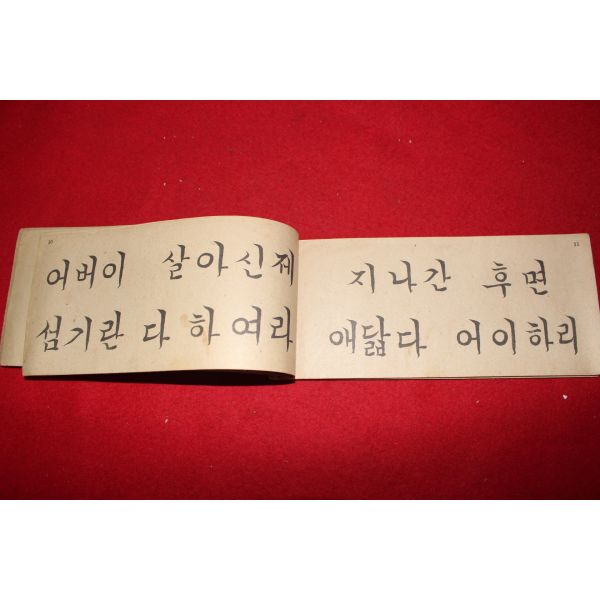 10
어버이 살아신제
섬기란 다 하여라
11
지나간 후면
애닯다 어이하리